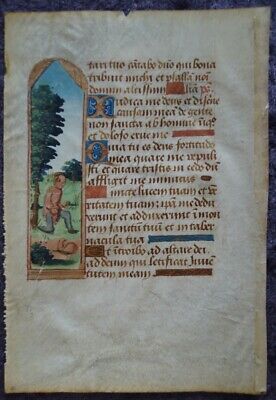 tari tuo cantabo dno qui bona
tribuit michi et psallam noi
domini altissimi Alia ps
Iudica me deus et discerne
causam meam de gente
non sancta ab homine iniq
et doloso erue me
Quia tu es deus fortitudo
mea quare me repuli
sti et quare tristis incedo du
affligit me inimicus
Emitte lucem tuam et ve
ritatem tuam ipsa me dedu
xerunt et adduxerunt in mo
tem sanctu tuu et in taber
nacula tua
Et introibo ad altare dei
ad deum qui letificat iuve
tutem meam